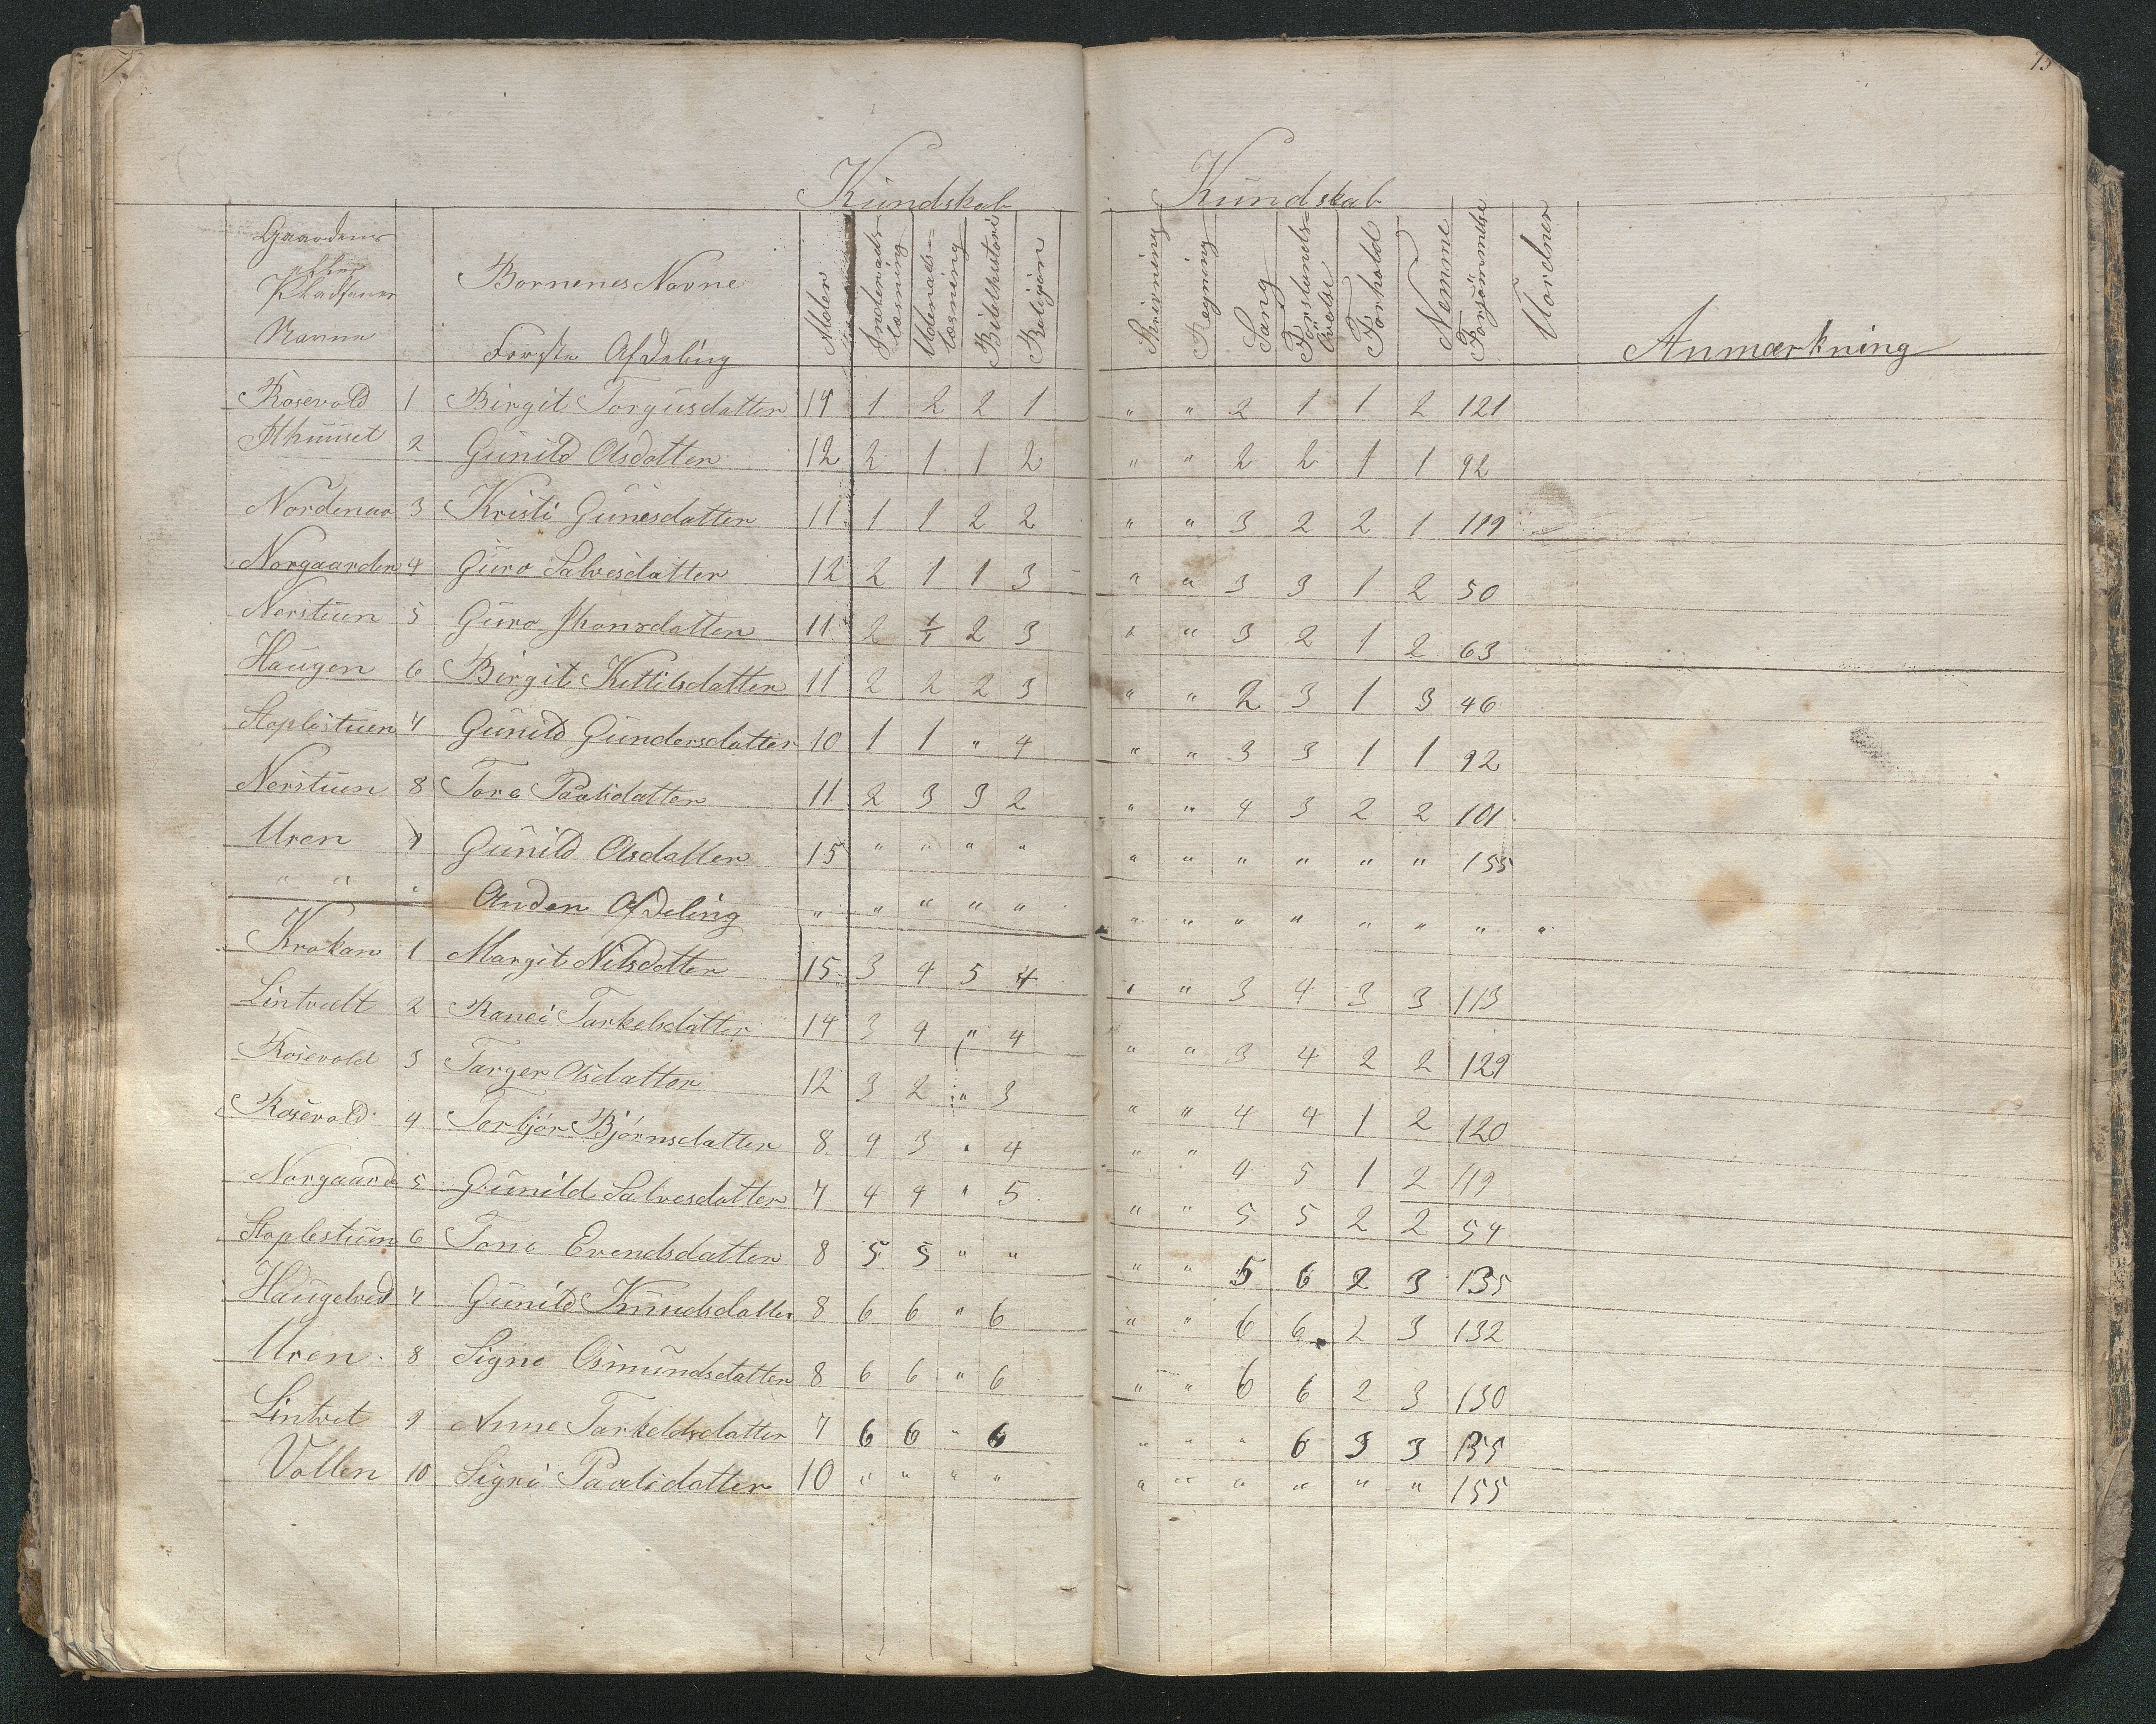 7
Kündskab
Gaardens eller Pladsenes Navne | | Bornenes Navne Forste Afdeling | Alder | Indenads-læsning | Udenads-læsning | Bibelhistori | Religion
Rosevold 1 Birgit Torgusdatter 14 1 2 2 1
Althuuset 2 Günild Olsdatter 12 2 1 1 2
Nordenaa 3 Kristi Günesdatter 11 1 1 2 2
Norgaarden 4 Güro Salvesdatter 12 2 1 1 3
Nerstüen 5 Güro Jhonsdatter 11 2 1/1 2 3
Haügen 6 Birgit Kittilsdatter 11 2 2 2 3
Staplestüen 7 Günild Gündersdatter 10 1 1 " 4
Nerstüen 8 Tore Paalsdatter 11 2 3 3 2
Uren 9 Günild Olsdatter 15 " " " "
" " " Anden Afdeling " " " " "
Krokan 1 Margit Nilsdatter 15 3 4 5 4
Lintvedt 2 Ranei Tarkelsdatter 14 3 4 " 4
Rosevold 3 Targer Olsdatter 12 3 2 " 3
Rosevold 4 Torbjør Bjørnsdatter 8 4 3 " 4
Norgaard 5 Günild Salvesdatter 7 4 4 " 5
Staplestüen 6 Tone Evendsdatter 8 5 5 " "
Haügelred 7 Günild Knudsdatter 8 6 6 " 6
Uren 8 Signe Osmündsdatter 8 6 6 " 6
Lintvet 9 Anne Tarkeldsdatter 7 6 6 " 6
Vollen 10 Signe Paalsdatter 10 " " " "
75
Kündskab
Skrivning | Regning | Sang | Forstands-Øvelse | Forhold | Nemme | Forsømmelse | Uordner | Anmærkning
" " 2 1 1 2 121
" " 2 2 1 1 92
" " 3 2 2 1 119
" " 3 3 1 2 50
" " 3 2 1 2 63
" " 2 3 1 3 46
" " 3 3 1 1 92
" " 4 3 2 2 101
" " " " " " 155
" " " " " " " "
" " 3 4 3 3 113
" " 3 4 2 2 129
" " 4 4 1 2 120
" " 4 5 1 2 119
" " 5 5 2 2 54
" " 5 6 2 3 135
" " 6 6 2 3 132
" " 6 6 2 3 130
" " " 6 3 3 135
" " " " " " 155